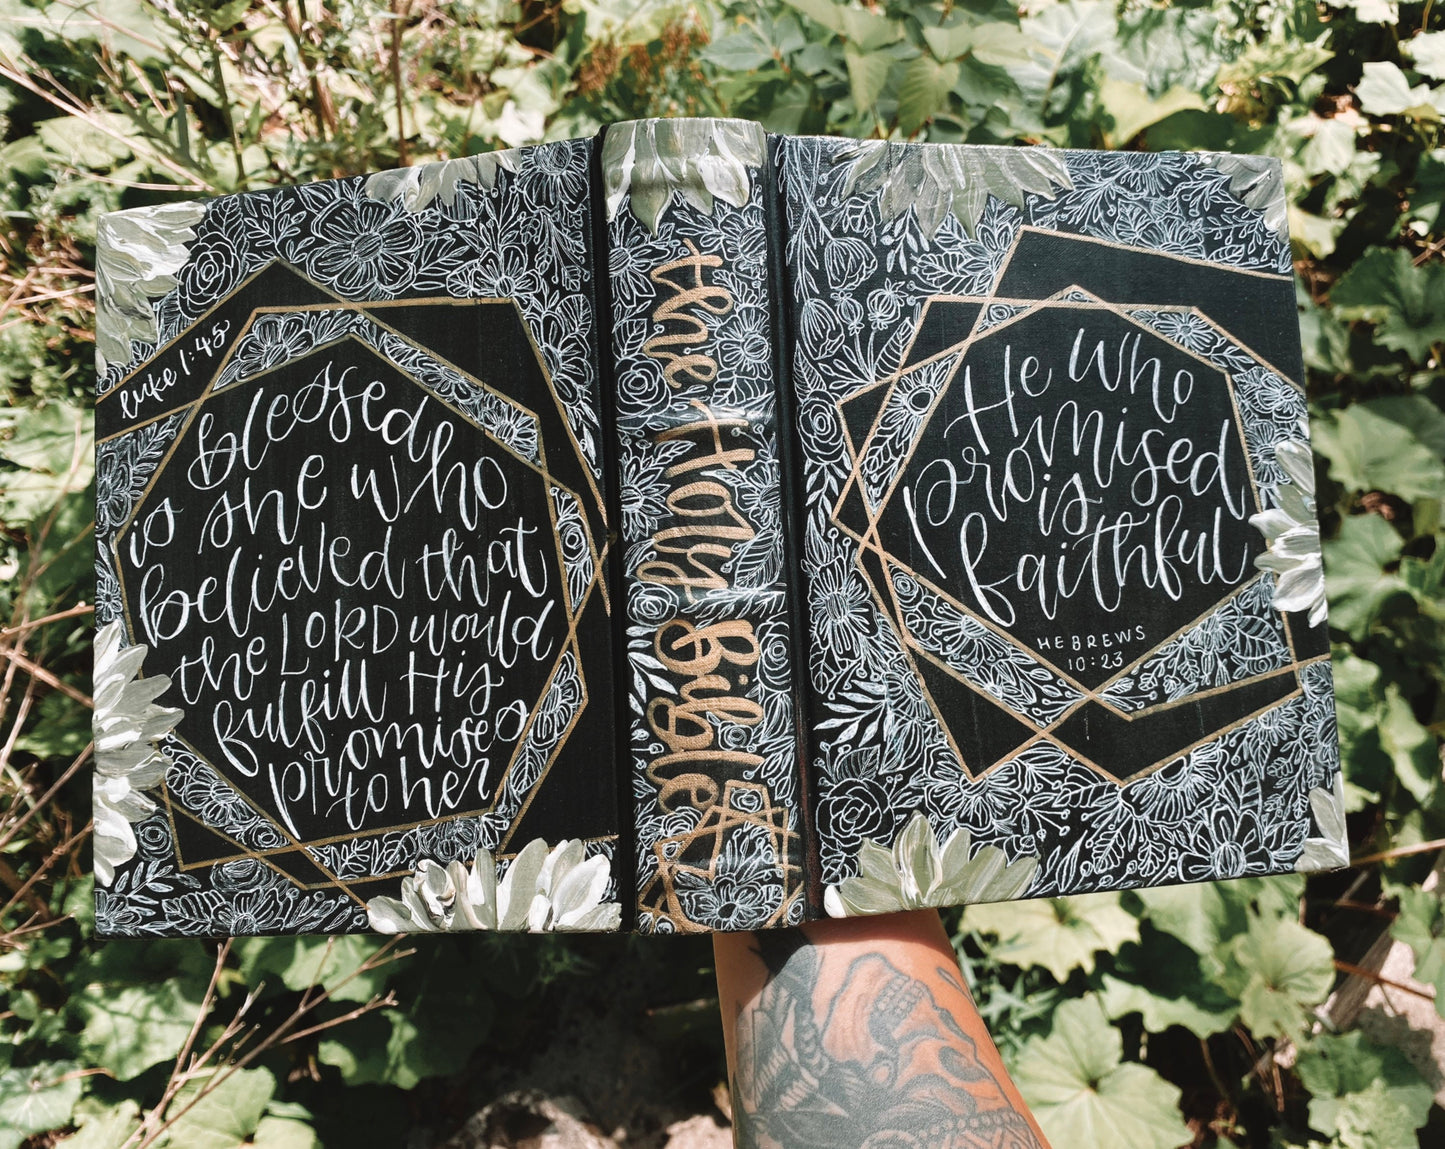 Luke 1:45
blessed
is she who
believed that
the LORD would
fulfill His
promises
to her
the Holy Bible
He who
promised
is
faithful
HEBREWS
10:23